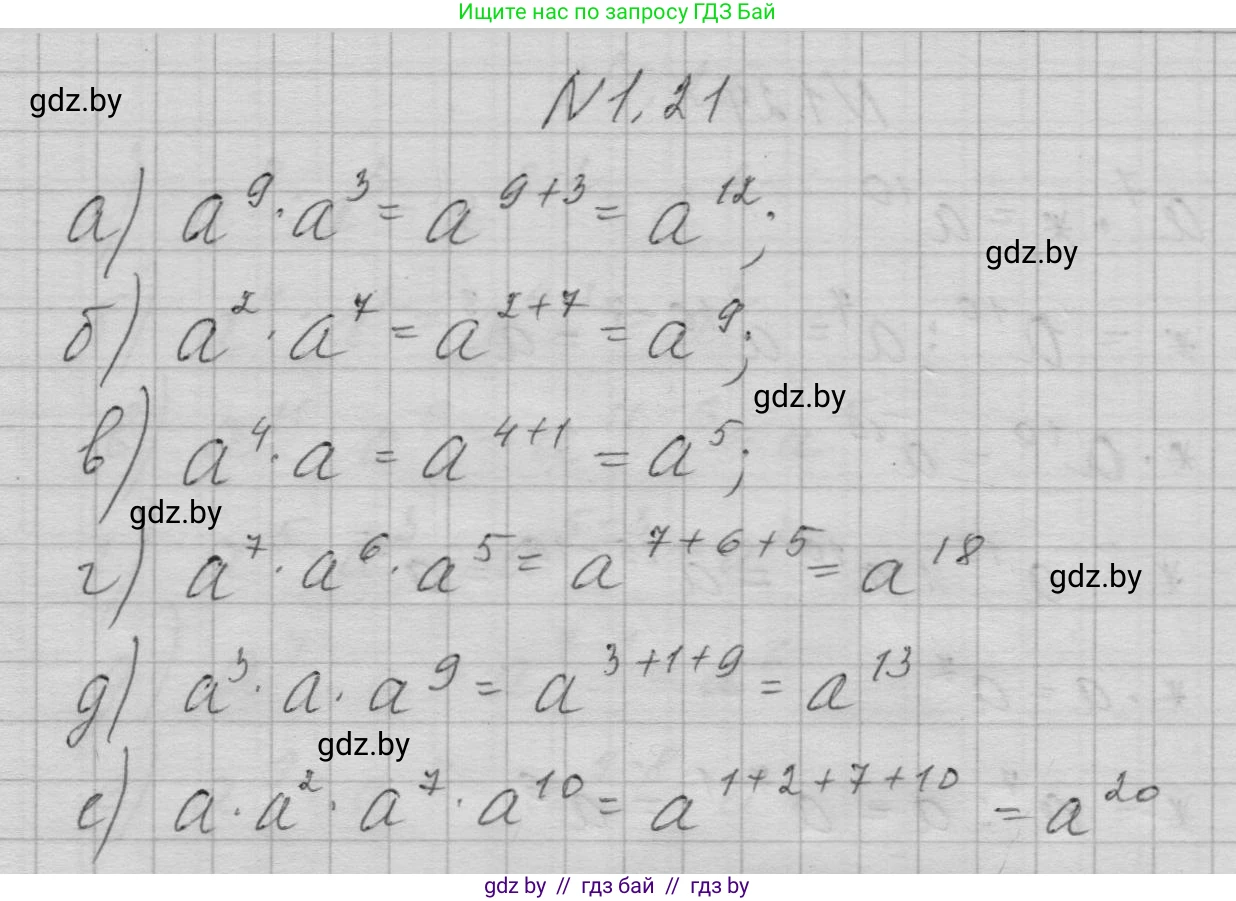 Ищите нас по запросу ГДЗ Бай
N 1.21
gdz.by
а) a⁹ · a³ = a⁹⁺³ = a¹²;
gdz.by
б) a² · a⁷ = a²⁺⁷ = a⁹;
gdz.by
в) a⁴ · a = a⁴⁺¹ = a⁵;
gdz.by
г) a⁷ · a⁶ · a⁵ = a⁷⁺⁶⁺⁵ = a¹⁸
gdz.by
д) a³ · a · a⁹ = a³⁺¹⁺⁹ = a¹³
gdz.by
е) a · a² · a⁷ · a¹⁰ = a¹⁺²⁺⁷⁺¹⁰ = a²⁰
gdz by // гдз бай // гдз by